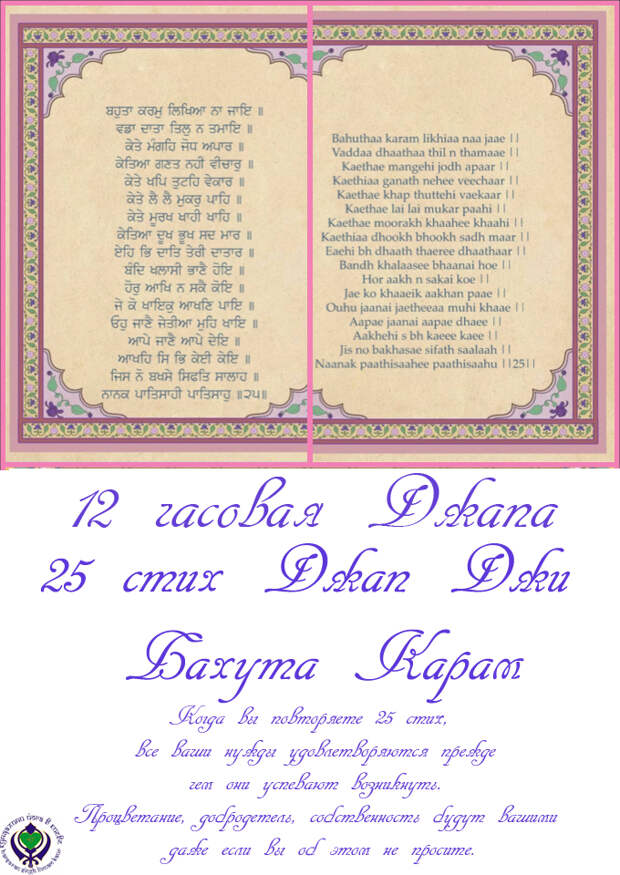 ਬਹੁਤਾ ਕਰਮੁ ਲਿਖਿਆ ਨਾ ਜਾਇ ॥
ਵਡਾ ਦਾਤਾ ਤਿਲੁ ਨ ਤਮਾਇ ॥
ਕੇਤੇ ਮੰਗਹਿ ਜੋਧ ਅਪਾਰ ॥
ਕੇਤਿਆ ਗਣਤ ਨਹੀ ਵੀਚਾਰੁ ॥
ਕੇਤੇ ਖਪਿ ਤੁਟਹਿ ਵੇਕਾਰ ॥
ਕੇਤੇ ਲੈ ਲੈ ਮੁਕਰੁ ਪਾਹਿ ॥
ਕੇਤੇ ਮੂਰਖ ਖਾਹੀ ਖਾਹਿ ॥
ਕੇਤਿਆ ਦੂਖ ਭੂਖ ਸਦ ਮਾਰ ॥
ਏਹਿ ਭਿ ਦਾਤਿ ਤੇਰੀ ਦਾਤਾਰ ॥
ਬੰਦਿ ਖਲਾਸੀ ਭਾਣੈ ਹੋਇ ॥
ਹੋਰੁ ਆਖਿ ਨ ਸਕੈ ਕੋਇ ॥
ਜੇ ਕੋ ਖਾਇਕੁ ਆਖਣਿ ਪਾਇ ॥
ਓਹੁ ਜਾਣੈ ਜੇਤੀਆ ਮੁਹਿ ਖਾਇ ॥
ਆਪੇ ਜਾਣੈ ਆਪੇ ਦੇਇ ॥
ਆਖਹਿ ਸਿ ਭਿ ਕੇਈ ਕੇਇ ॥
ਜਿਸ ਨੋ ਬਖਸੇ ਸਿਫਤਿ ਸਾਲਾਹ ॥
ਨਾਨਕ ਪਾਤਿਸਾਹੀ ਪਾਤਿਸਾਹੁ ॥੨੫॥
Bahuthaa karam likhiaa naa jaae ||
Vaddaa dhaathaa thil n thamaae ||
Kaethae mangehi jodh apaar ||
Kaethiaa ganath nehee veechaar ||
Kaethae khap thuttehi vaekaar ||
Kaethae lai lai mukar paahi ||
Kaethae moorakh khaahee khaahi ||
Kaethiaa dhookh bhookh sadh maar ||
Eaehi bh dhaath thaeree dhaathaar ||
Bandh khalaasee bhaanai hoe ||
Hor aakh n sakai koe ||
Jae ko khaaeik aakhan paae ||
Ouhu jaanai jaetheeaa muhi khaae ||
Aapae jaanai aapae dhaee ||
Aakhehi s bh kaeee kaee ||
Jis no bakhasae sifath saalaah ||
Naanak paathisaahee paathisaahu ||25||
12 часовая Джапа
25 стих Джап Джи
Бахута Карам
Когда вы повторяете 25 стих,
все ваши нужды удовлетворяются прежде
чем они успевают возникнуть.
Процветание, добродетель, собственность будут вашими
даже если вы об этом не просите.